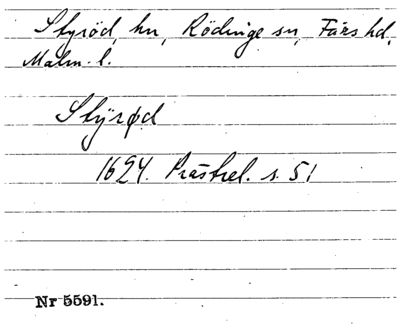 Styröd, hn, Rödinge sn, Färs hd,
Malm. l.
Stÿrød
1624. Prästrel. s. 51
Nr 5591.